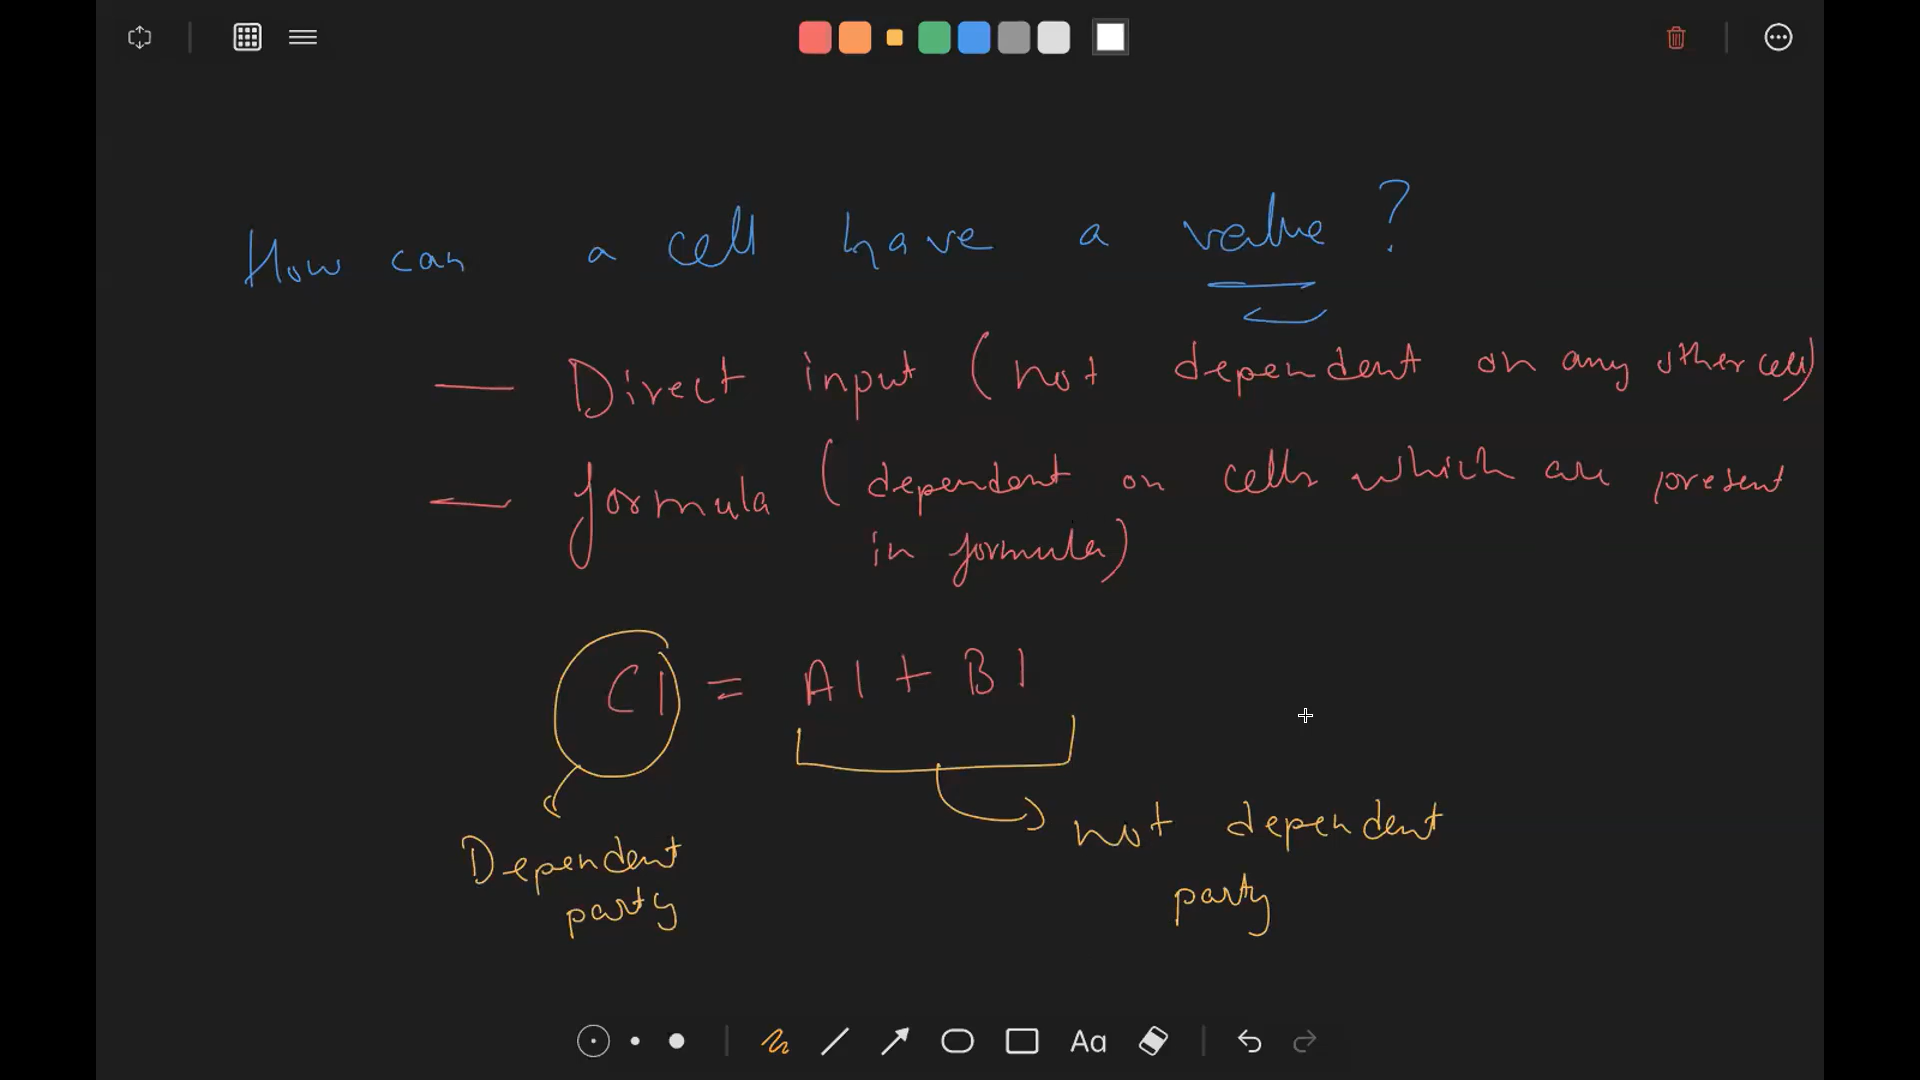 How can a cell have a value?
— Direct input (not dependent on any other cell)
— formula (dependent on cells which are present
in formula)
C1 = A1 + B1
not dependent
party
Dependent
party
Aa